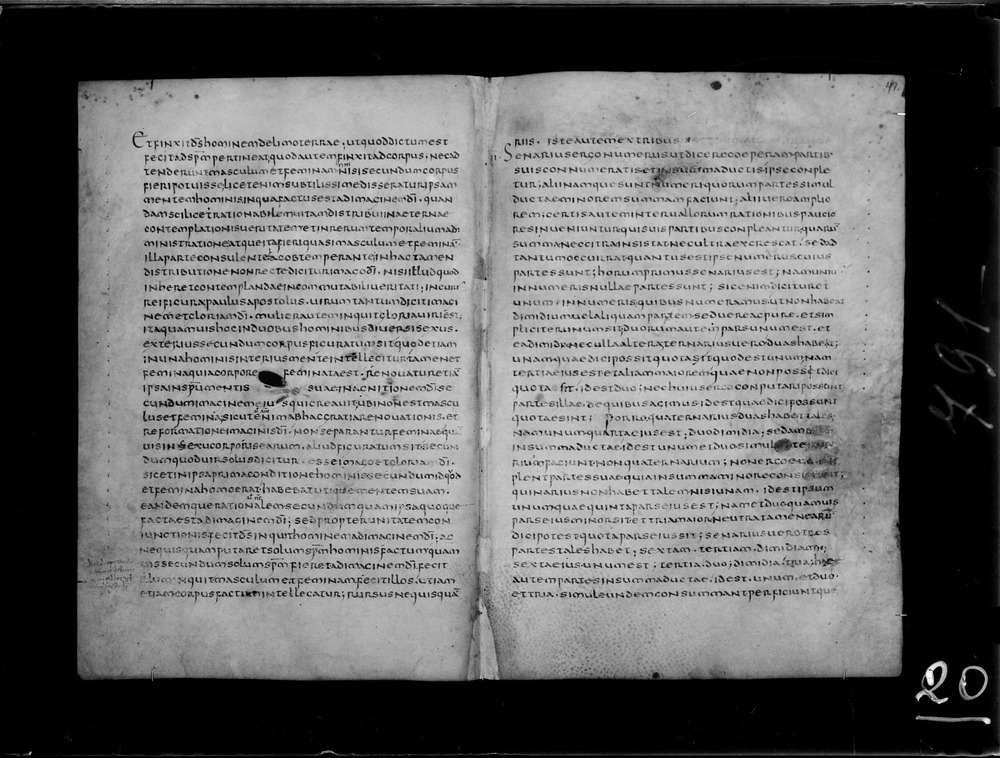 Et finxit ds hominem de limo terrae, ut quod dictum est
fecit ad spm pertineat quod autem finxit ad corpus, nec ad
tendunt masculum et feminam non nisi secundum corpus
fieri potuisse licet enim subtilissime disseratur ipsam
mentem hominis in qua factus est ad imaginem di, quan
dam scilicet rationabilem uitam distribui in aeternae
contemplationis ueritatem et in rerum temporalium ad
ministratione atque ita fieri quasi masculum et feminā
illa parte consulente hac obtemperante in hac tamen
distributione non recte dicitur imago di, nisi illud quod
inheret contemplandae incommutabili ueritati; in cuius
rei figura paulus apostolus, uirum tantum dicit imagi
nem et gloriam di, mulier autem inquit gloria uiri est;
itaquamuis hoc in duobus hominibus diuersi sexus,
exterius secundum corpus figuratum sit quod etiam
in una hominis interius mente intellegitur tamen et
femina quia corpore femina est, renouatur etiā
ipsa in spu mentis suae in agnitionem di se
cundum imaginem eius qui creauit ubi non est mascu
lus et femina sicut enim ab hac gratia renouationis, et
reformatione imaginis di, non separantur feminae qu
uis in sexu corporis earum, aliud figuratum sit secun
dum quod uir solus dicitur esse imago et gloria di,
sic et in ipsa prima conditione hominis secundum id quod
et femina homo erat habebat utique mentem suam,
eandemque rationalem secundum quam ipsa quoque
facta est ad imaginem di; sed propter unitatem con
iunctionis fecit ds inquit hominem ad imaginem di; ac
ne quisquam putaret solum spm hominis factum quam
uis secundum solum spm fieret ad imaginem di fecit
illum inquit masculum et feminam fecit illos, ut iam
etiam corpus factum intellegatur; rursus ne quisquā
41
riis. iste autem ex tribus
II. Senarius ergo numerus ut dicere coeperam partib
suis connumeratis et in summam ductis ipse conple
tur; alii namque sunt numeri quorum partes simul
ductae minorem summam faciunt; alii uero amplio
rem; certis autem interuallorum rationibus paucio
res inueniuntur qui suis partibus conpleantur quarum
summa nec citra insistat nec ultra excrescat, sed ad
tantum occurrat quantus est ipse numerus cuius
partes sunt; horum primus senarius est; nam unum
in numeris nullae partes sunt; sic enim dicitur et
unum, in numeris quibus numeramus ut non habeat
dimidium uel aliquam partem sed uere ac pure, et sim
pliciter unum sit duorum autem pars unum est, et
ea dimidia nec ulla altera ternarius uero duas habet;
unam quae dici possit quota sit quod est unum nam
tertia eius est et aliam maiorem quae non possit dici
quota sit, id est duo; nec huius ergo conputari possunt
partes illae, de quibus agimus id est quae dici possunt
quotae sint; porro quaternarius duas habet tales
nam unum quarta eius est, duo dimidia, sed ambae
in summam ductae id est unum et duo simul ter
rium faciunt non quaternarium; non ergo eum
plent partes suae quia in summam minore consistunt;
quinarius non habet talem nisi unam, id est ipsum
unum quae quinta pars eius est; nam et duo quamuis
pars eius minor sit et tria maior neutra tamen earū
dici potest quota pars eius sit; senarius uero tres
partes tales habet; sextam, tertiam, dimidiam;
sexta eius unum est; tertia, duo; dimidia, tria; hae
autem partes in summam ductae, id est, unum, et duo,
et tria, simul eundem consummant perficiuntque
791
20